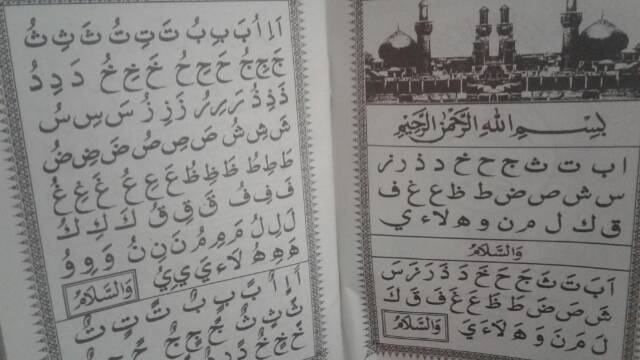 بِسْمِ اللهِ الرَّحْمٰنِ الرَّحِيْمِ
ا ب ت ث ج ح خ د ذ ر ز
س ش ص ض ط ظ ع غ ف
ق ك ل م ن و ه لا ء ي
وَالسَّلَامُ
اَ بَ تَ ثَ جَ حَ خَ دَ ذَ رَ زَ سَ
شَ صَ ضَ طَ ظَ عَ غَ فَ قَ كَ
لَ مَ نَ وَ هَ لَا ءَ يَ وَالسَّلَامُ
اَ اِ اُ بَ بِ بُ تَ تِ تُ ثَ ثِ ثُ
جَ جِ جُ حَ حِ حُ خَ خِ خُ دَ دِ دُ
ذَ ذِ ذُ رَ رِ رُ زَ زِ زُ سَ سِ سُ
شَ شِ شُ صَ صِ صُ ضَ ضِ ضُ
طَ طِ طُ ظَ ظِ ظُ عَ عِ عُ غَ غِ غُ
فَ فِ فُ قَ قِ قُ كَ كِ كُ
لَ لِ لُ مَ مِ مُ نَ نِ نُ وَ وِ وُ
هَ هِ هُ لَا ءَ يَ يِ يُ وَالسَّلَامُ
اً اٍ اٌ بً بٍ بٌ تً تٍ تٌ
ثً ثٍ ثٌ جً جٍ جٌ